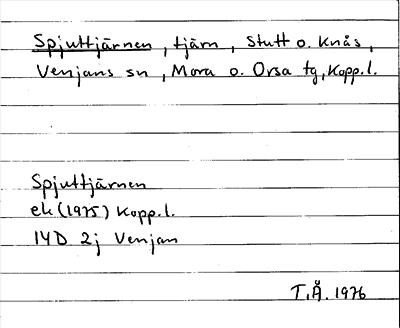 Spjuttjärnen, tjärn, Stutt o. Knås,
Venjans sn, Mora o. Orsa tg, Kopp.l.
Spjuttjärnen
ek (1975) Kopp.l.
14D 2j Venjan
T.Å. 1976